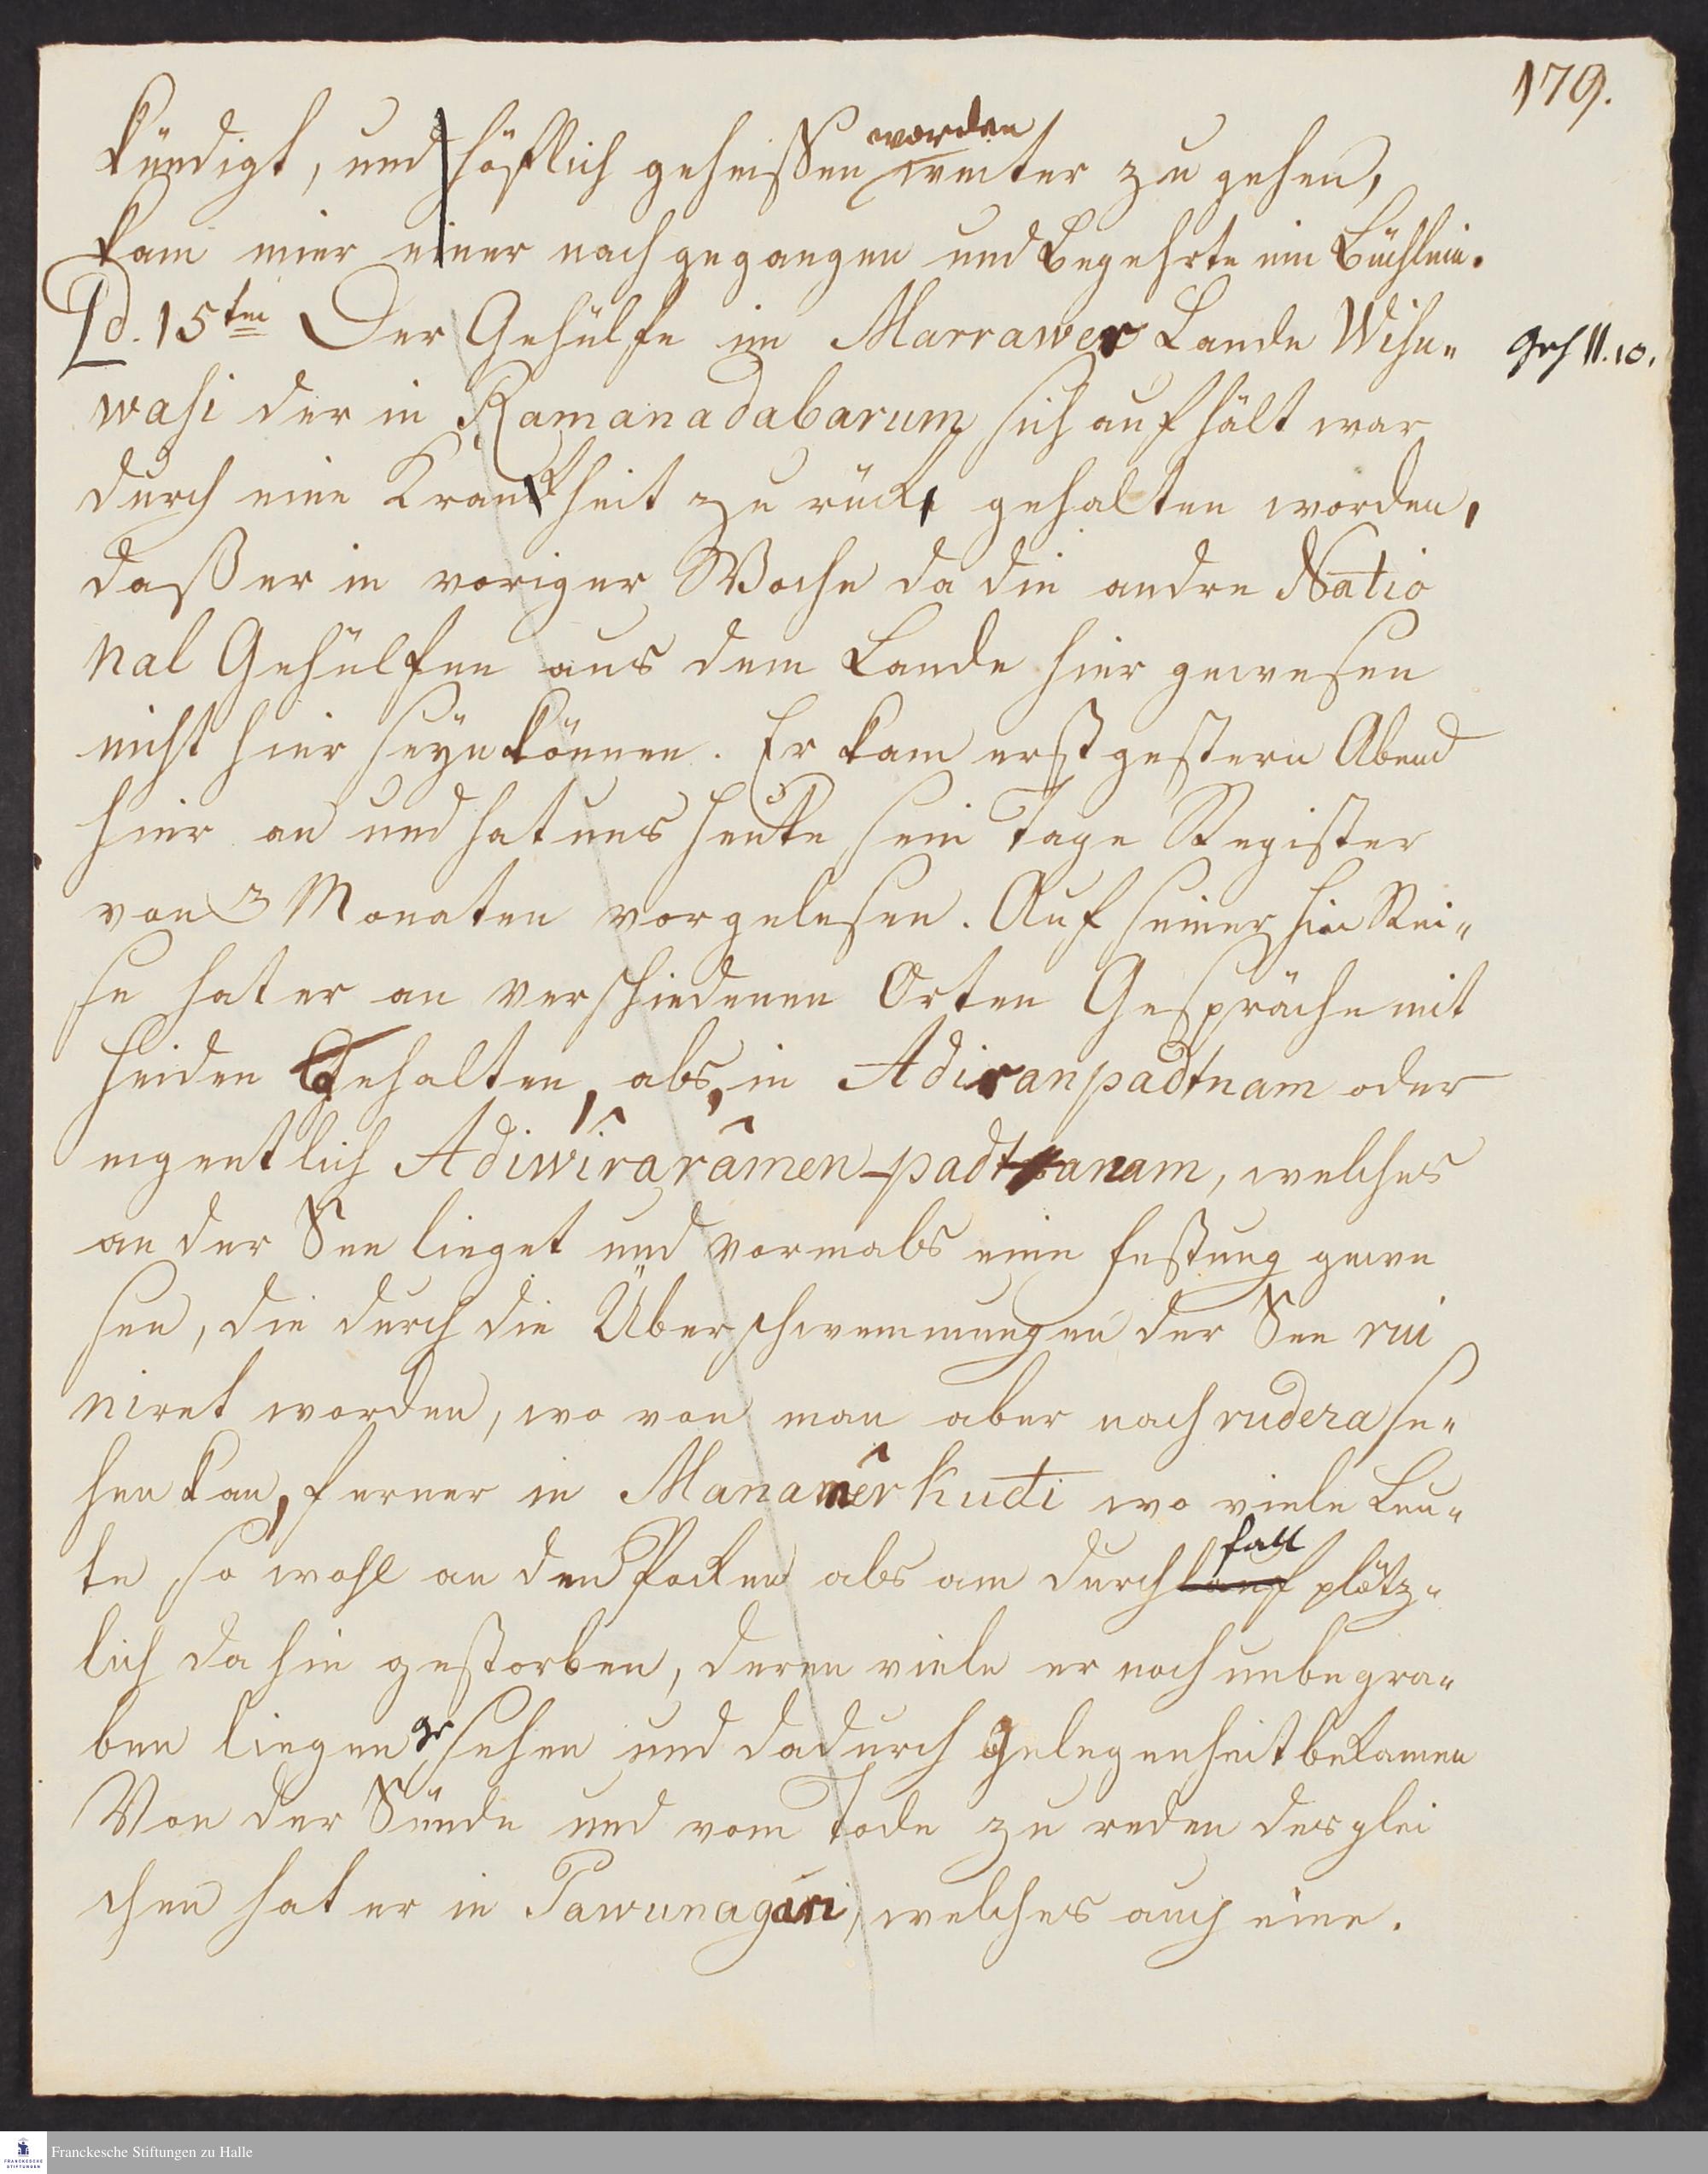 179.
kündigt, und höflich geheißen worden weiter zu gehen,
kam mir einer nach gegangen und begehrte ein Büchlein.
d. 15ten Der Gehülfe im Marrawer Lande Wisu-
wasi der in Ramanadabarum sich aufhält war
durch eine Krankheit zu rück gehalten worden,
daß er in voriger Woche da die andre Natio
nal Gehülfen aus dem Lande hier gewesen
nicht hier seyn können. Er kam erst gestern Abend
hier an und hat uns heute sein Tage Register
von 3 Monaten vorgelesen. Auf seiner hin Rei-
se hat er an verschiedenen Orten Gespräche mit
Heiden Gehalten, als, in Adiranpadtnam oder
eigentlich Adiwîrarâmen-padtanam, welches
an der See lieget und vormals eine Festung gewe
sen, die durch die Überschwemmungen der See rui
niret worden, wo von man aber noch rudera se-
hen kan, ferner in Manamêrkudi wo viele Leu-
te so wohl an den Pocken als am durchlauf fall plötz-
lich da hin gestorben, deren viele er noch unbegra-
ben liegen gesehen und dadurch Gelegenheit bekamen
Von der Sünde und vom Tode zu reden desglei
chen hat er in Pawunagari, welches auch eine.
Franckesche Stiftungen zu Halle